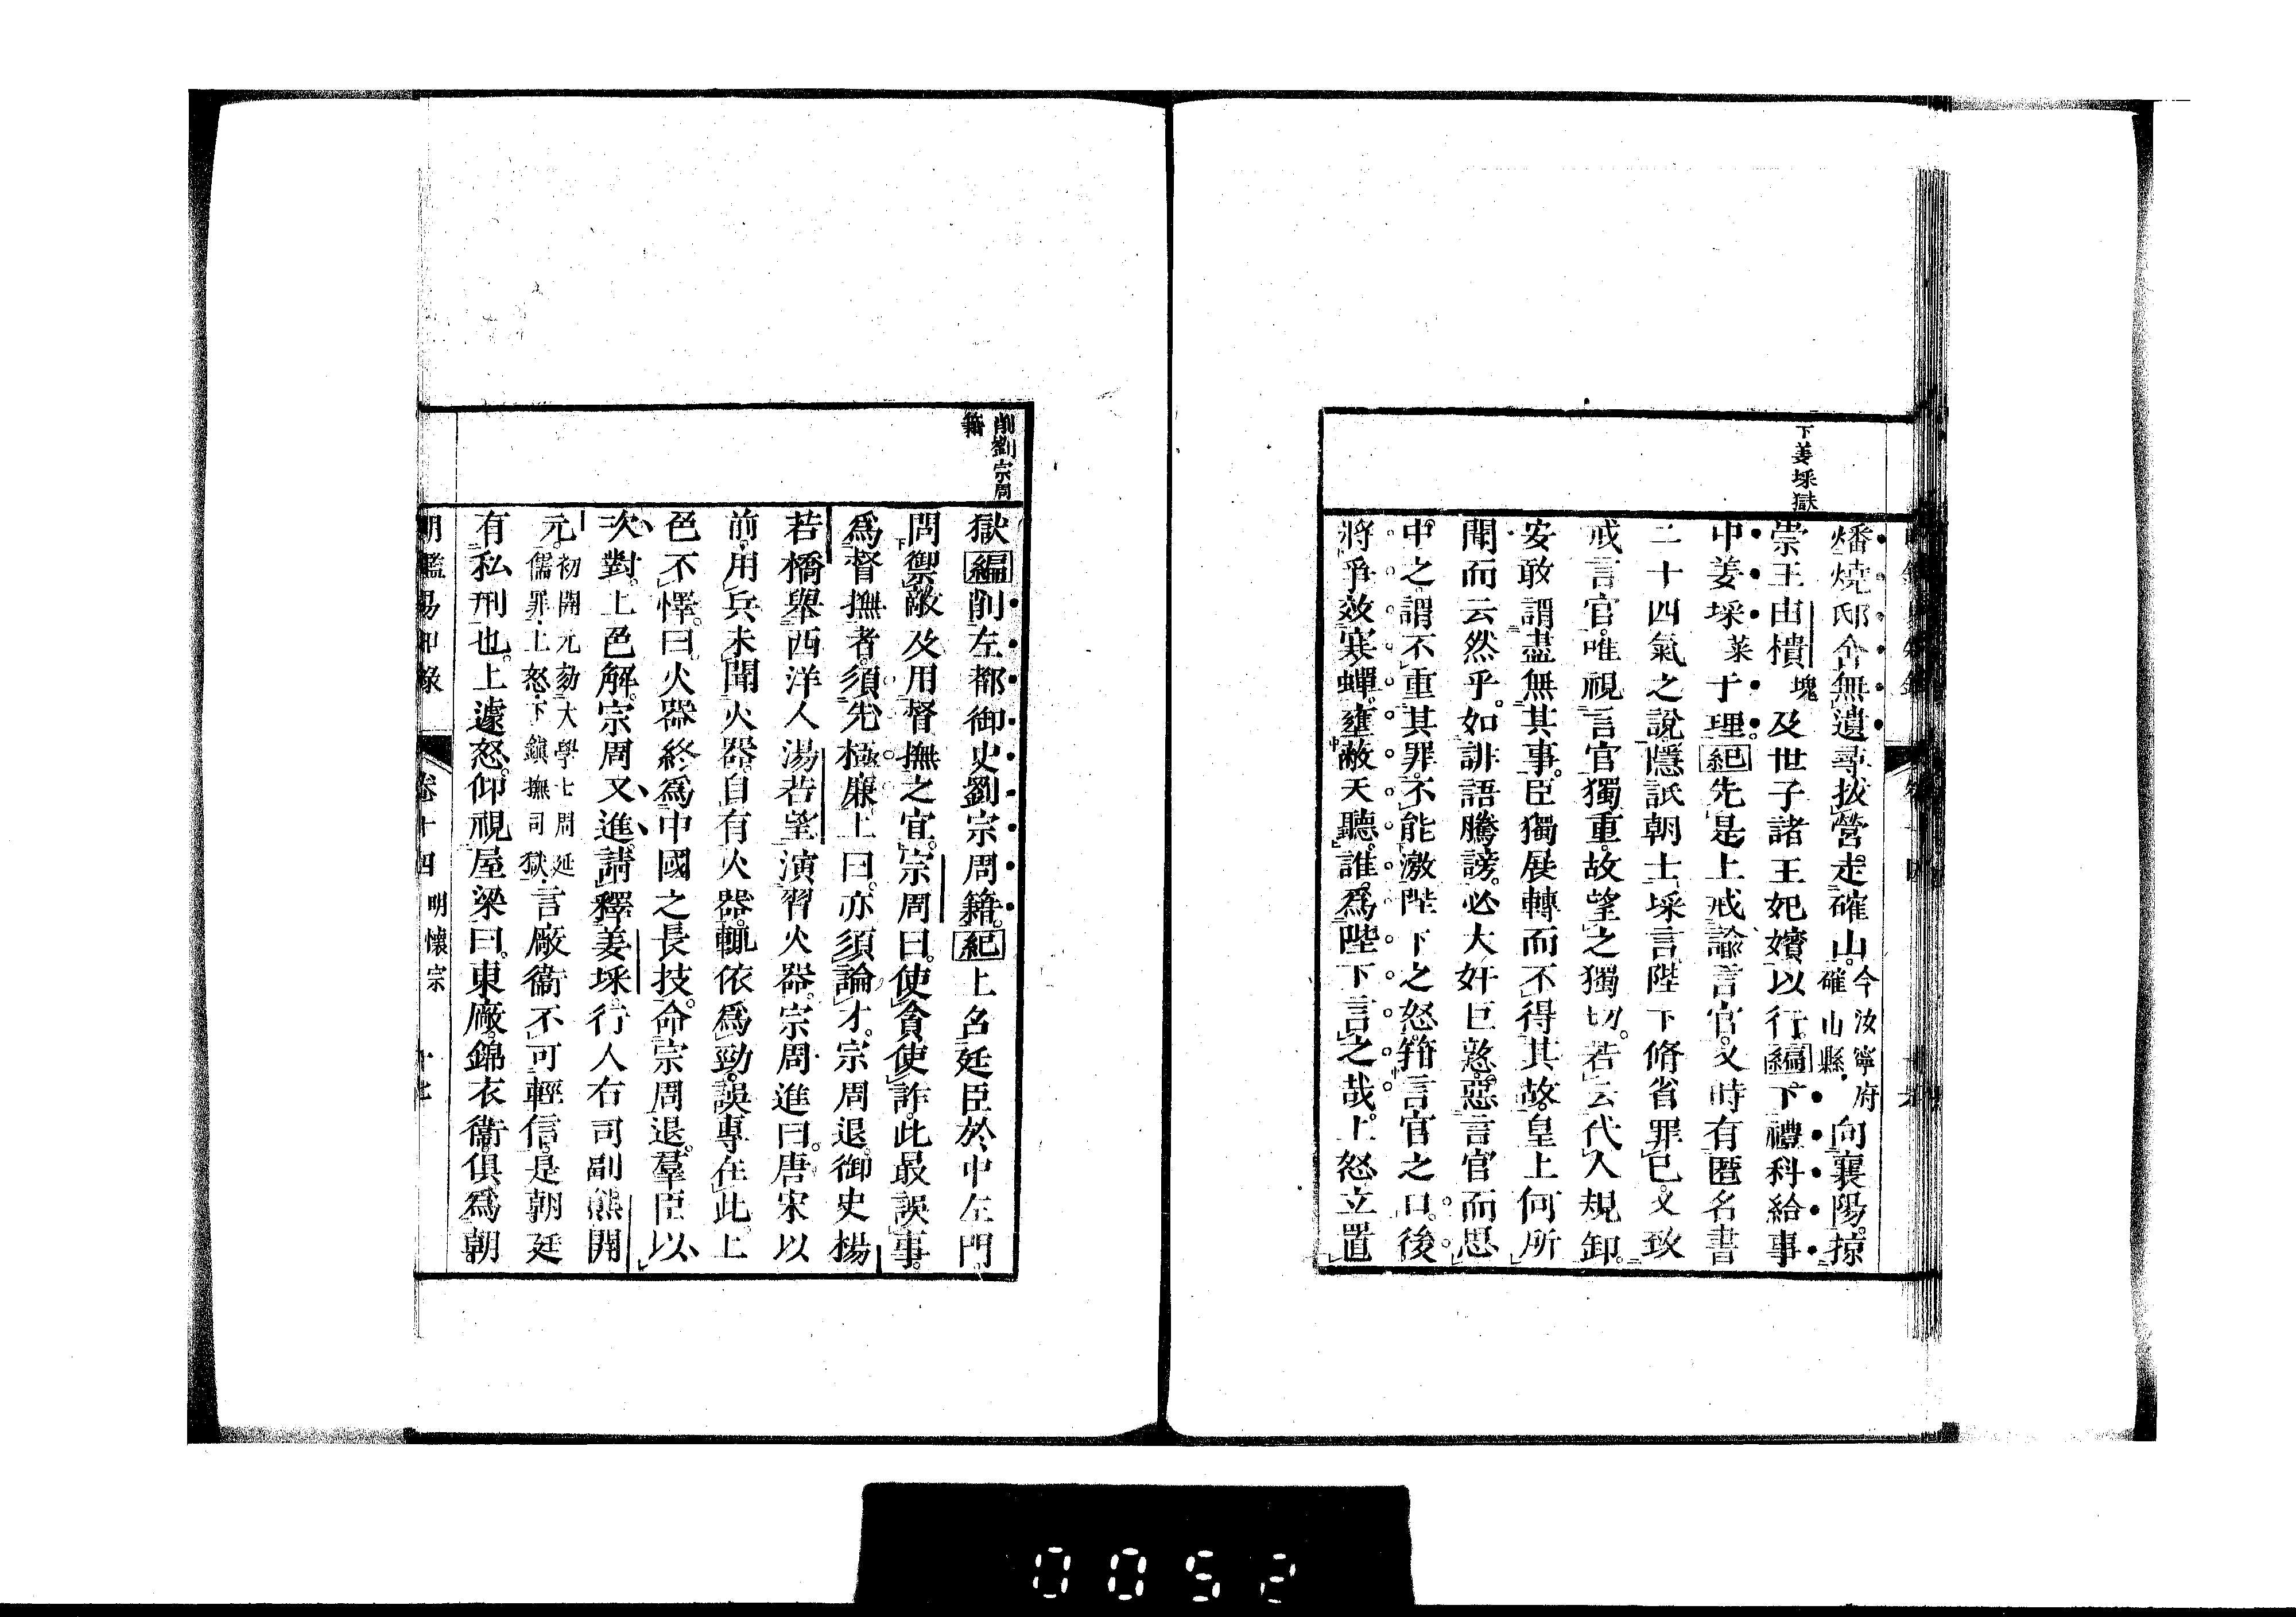 下姜埰獄
燔燒邸舍無遺尋拔營走確山今汝寧府確山縣向襄陽掠
崇王由樻塊及世子諸王妃嬪以行編下禮科給事
中姜埰菜于理紀先是上戒諭言官又時有匿名書
二十四氣之說隱詆朝士埰言陛下脩省罪己又致
戒言官唯視言官獨重故望之獨切若云代人規卸
安敢謂盡無其事臣獨展轉而不得其故皇上何所
聞而云然乎如誹語騰謗必大奸巨憝惡言官而思
中之謂不重其罪不能激陛下之怒箝言官之口後
將爭效寒蟬壅蔽天聽誰爲陛下言之哉上怒立置
削劉宗周
籍
獄編削左都御史劉宗周籍紀上召廷臣於中左門
問禦敵及用督撫之宜宗周曰使貪使詐此最誤事
爲督撫者須先極廉上曰亦須論才宗周退御史楊
若橋舉西洋人湯若望演習火器宗周進曰唐宋以
前用兵未聞火器自有火器輒依爲勁誤專在此上
色不懌曰火器終爲中國之長技命宗周退羣臣以
次對上色解宗周又進請釋姜埰行人右司副熊開
元初開元劾大學士周延儒罪上怒下鎮撫司獄言廠衞不可輕信是朝廷
有私刑也上遽怒仰視屋梁曰東廠錦衣衞俱爲朝
明鑑易知錄 卷十四 明懷宗 十七
0052